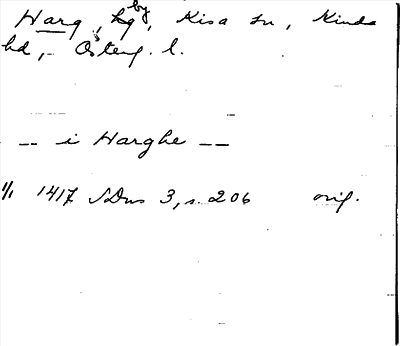 Harg, by, Kisa sn, Kinds
hd, Österg. l.
-- i Harghe --
1/1 1417 SDns 3, s. 206 orig.